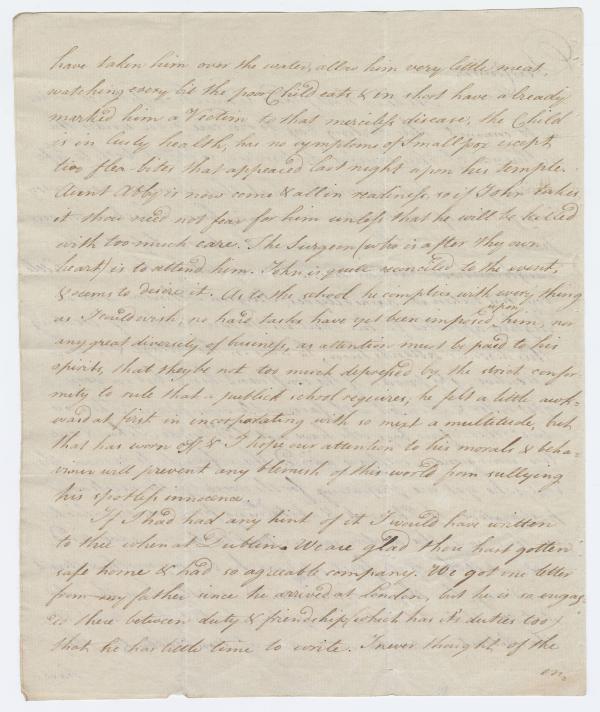 have taken him over the water, allow him very little meat,
watching every bit the poor Child eats & in short have already
marked him a Victim to that merciless disease, the Child
is in lusty health, has no symptoms of Small pox except
two flea bites that appeared last night upon his temple.
Aunt Abby is now come & all in readiness, so if John takes
it thou need not fear for him unless that he will be killed
with too much care. The Surgeon (who is after thy own
heart) is to attend him. John is quite reconciled to the event,
& seems to desire it. As to the school he complies with every thing
as I could wish, no hard tasks have yet been imposed upon him, nor
any great diversity of business, as attention must be paid to his
spirits, that they be not too much depressed by the strict confor-
mity to rule that a publick school requires, he felt a little awk-
ward at first in incorporating with so mixt a multitude, but
that has worn off & I hope our attention to his morals & beha-
viour will prevent any blemish of this world from sullying
his spotless innocence.
If I had had any hint of it I would have written
to thee when at Dublin. We are glad thou hast gotten
safe home & had so agreeable company. We got one letter
from my father since he arrived at London, but he is so engag-
ed there between duty & friendship (which has its duties too)
that he has little time to write. I never thought of the